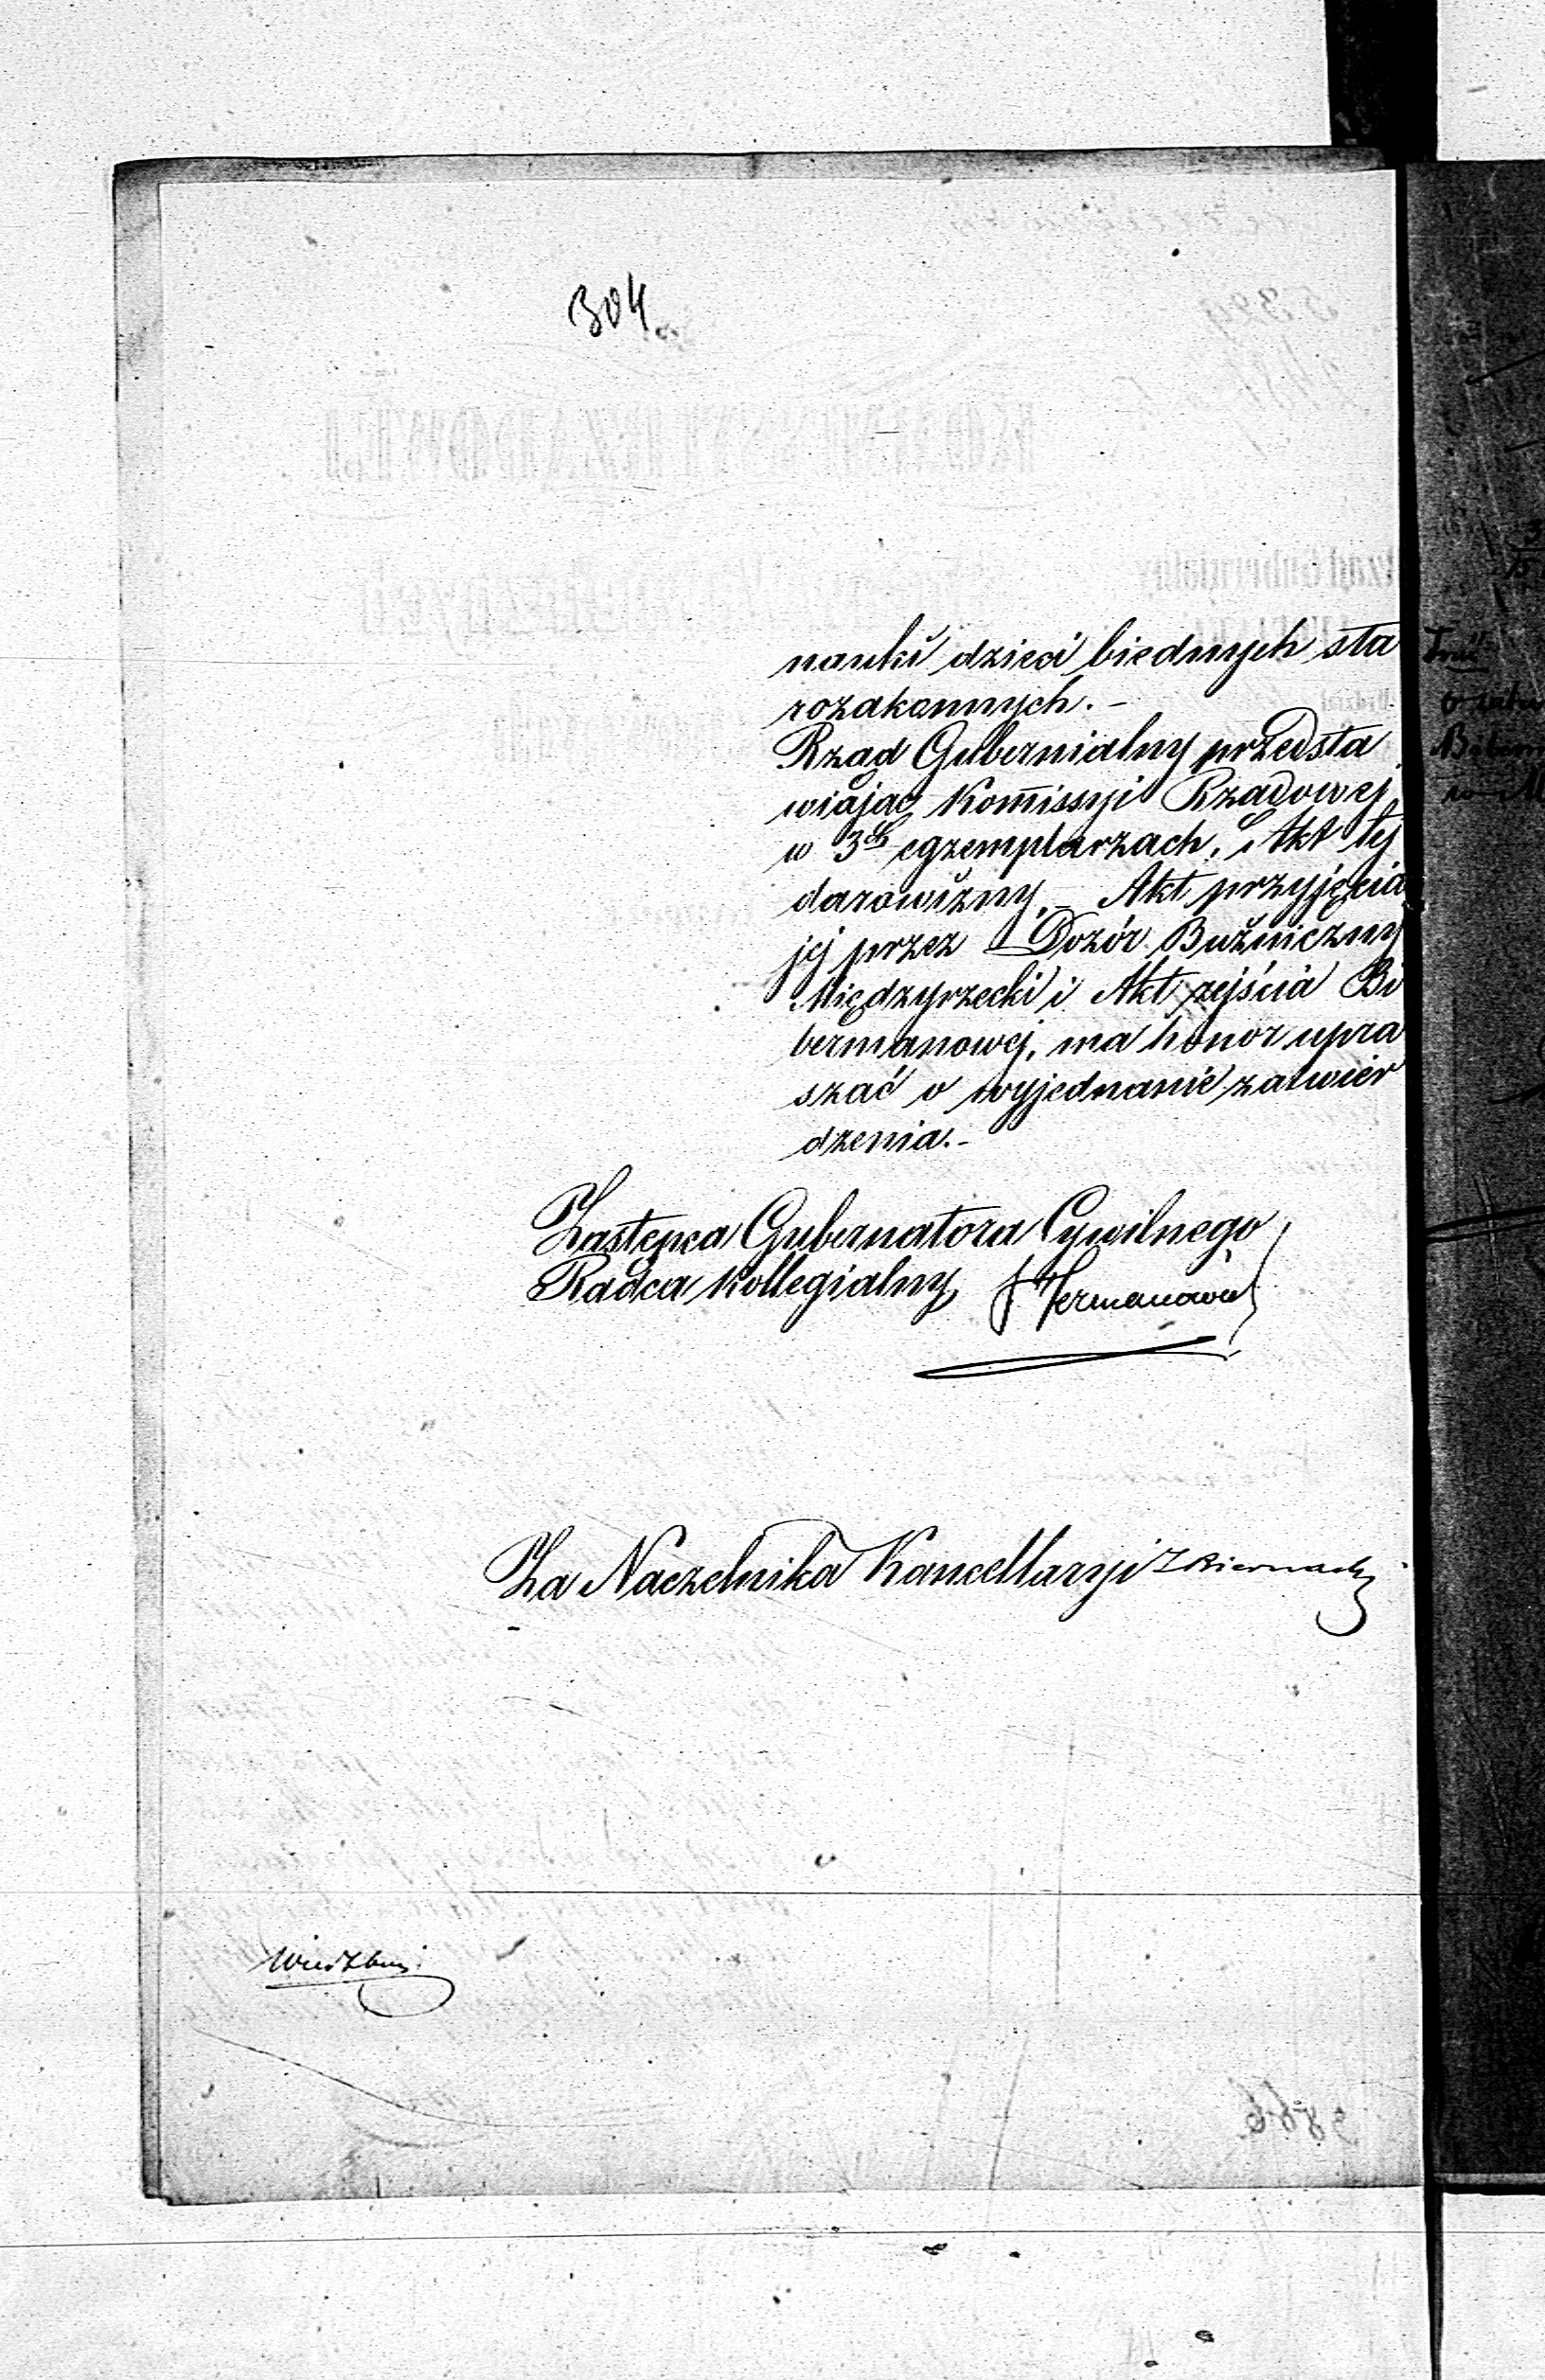 304
nauki dzieci biednych sta
rozakonnych. -
Rząd Gubernialny przedsta
wiając Kommissyi Rządowej
w 3ch egzemplarzach, Akt tej
darowizny, - Akt przyjęcia
jej przez Dozór Bużniczny
Międzyrzecki i Akt zejścia Bi
bermanowej, ma honor upra
szać o wyjednanie zatwier
dzenia. -
Zastępca Gubernatora Cywilnego
Radca Kollegialny
Za Naczelnika Kancellaryi Biernacki